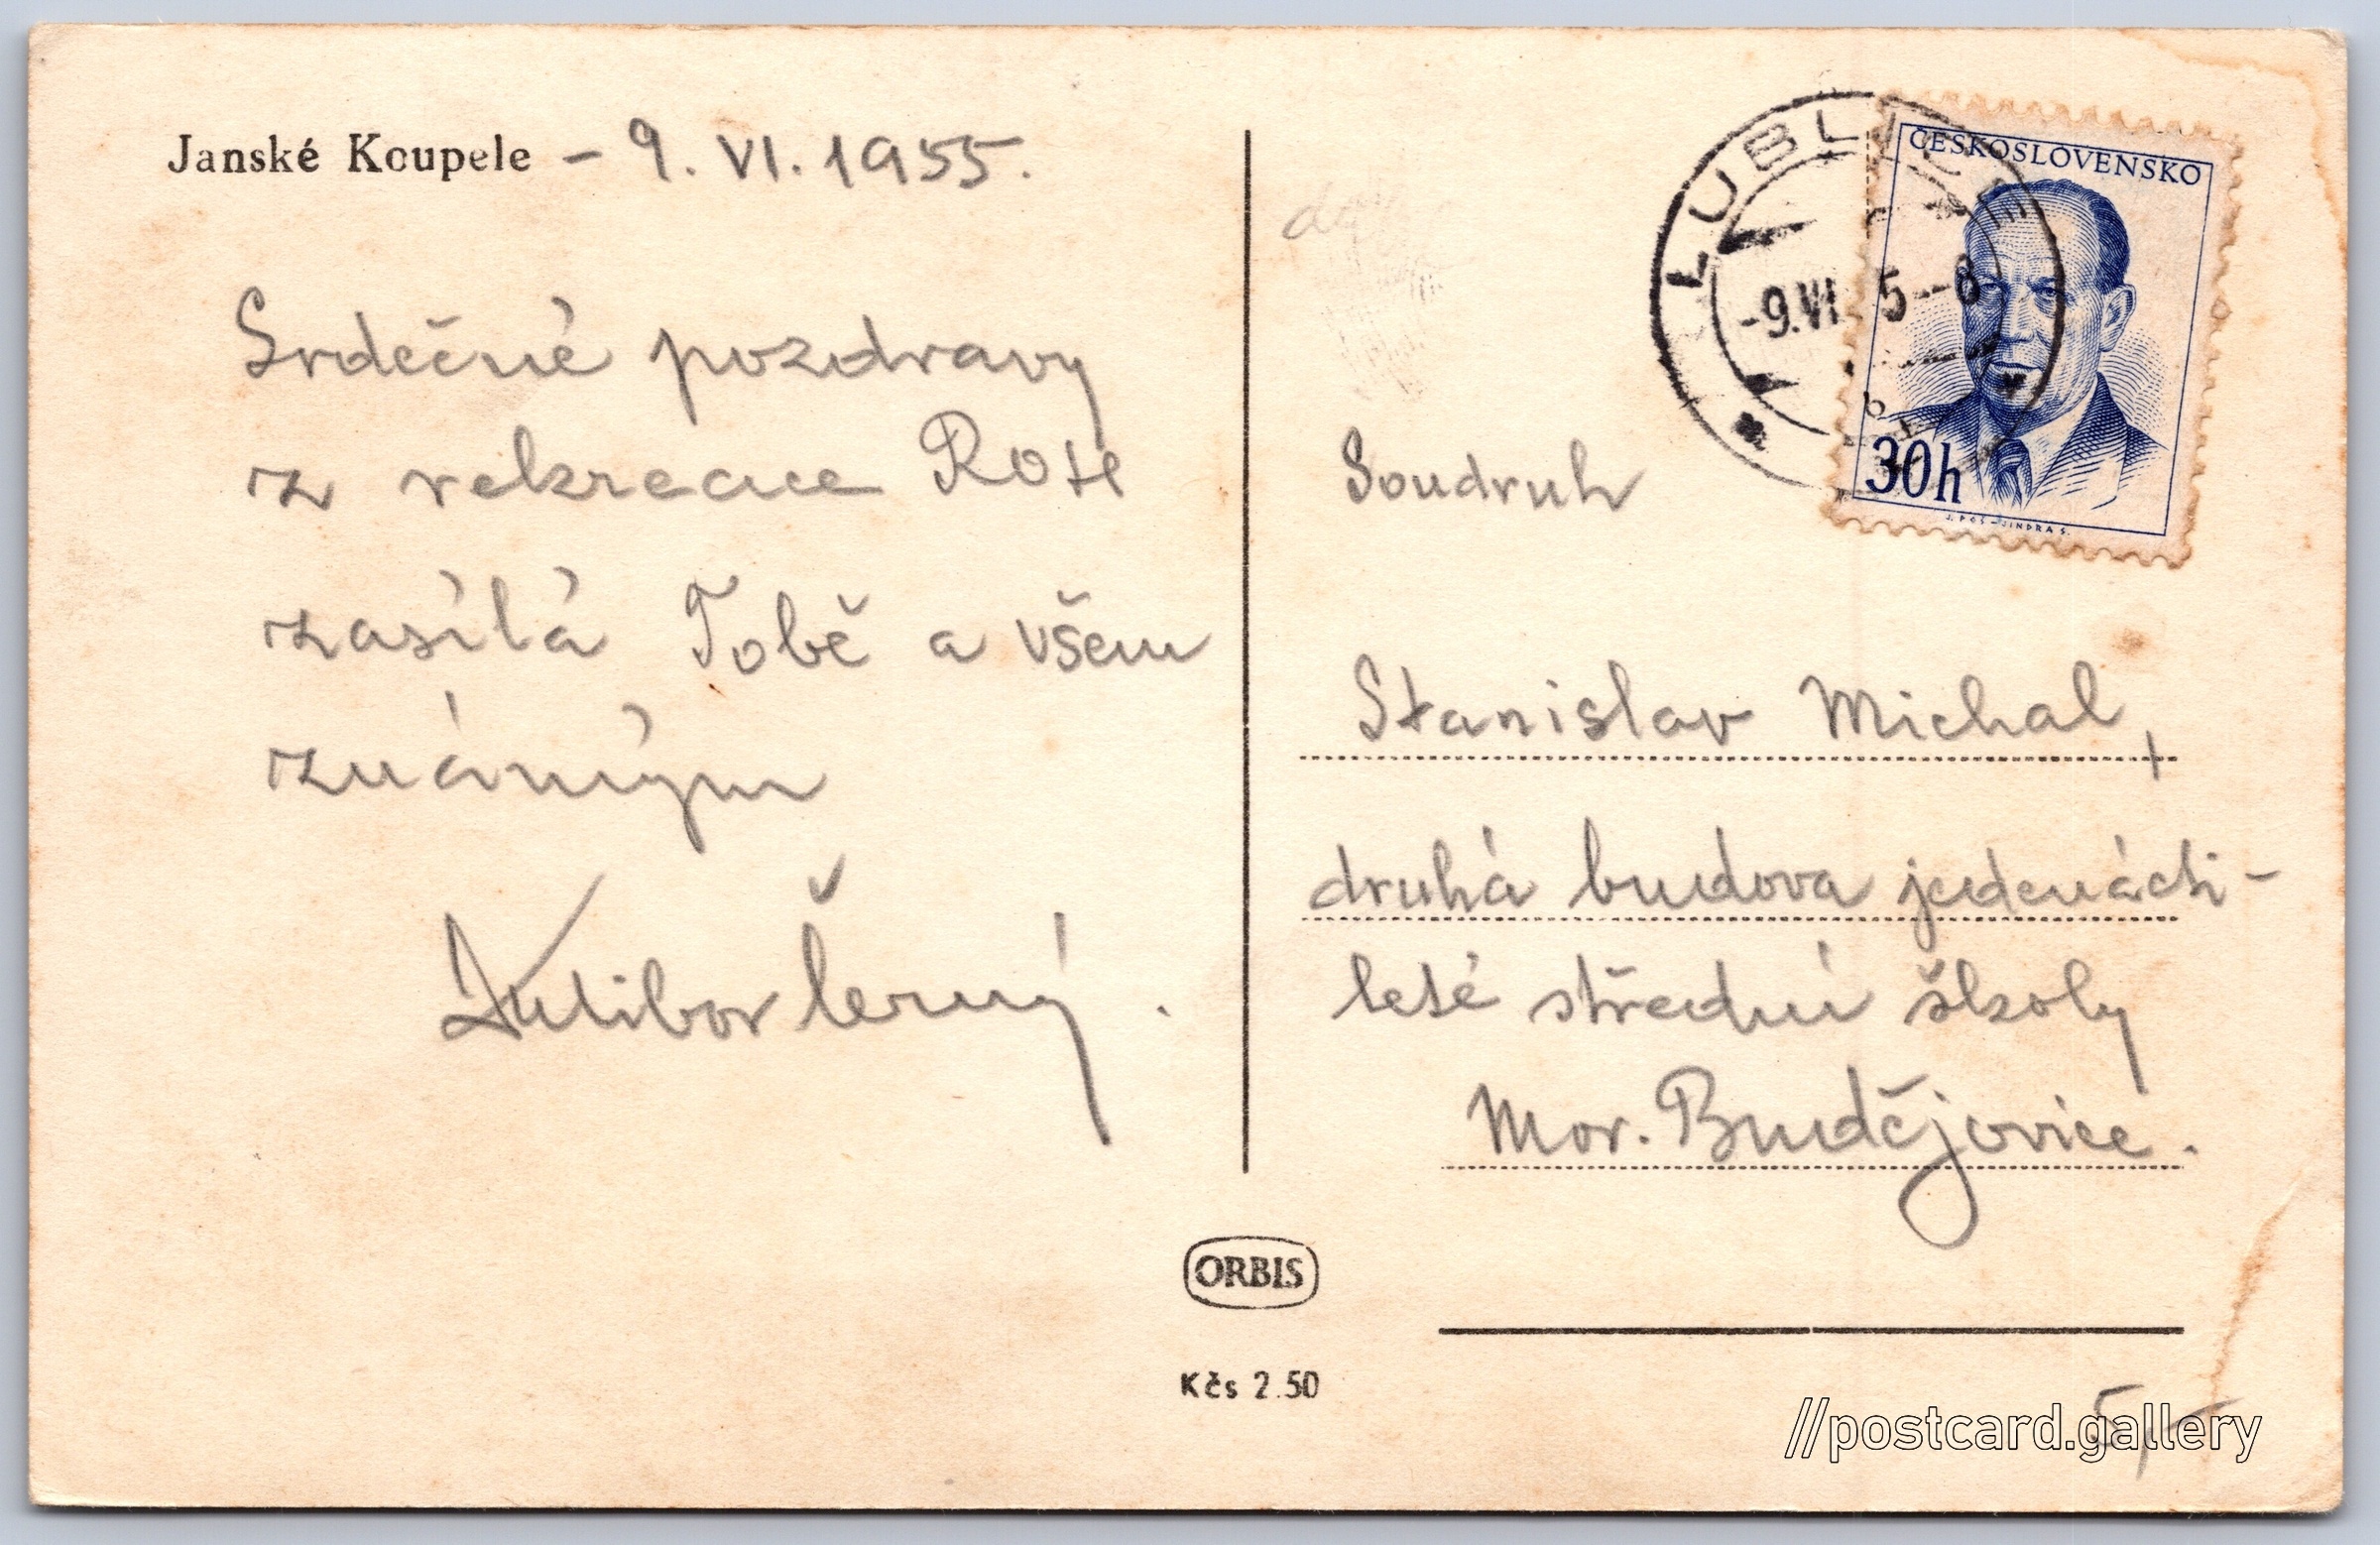 Janské Koupele - 9. VI. 1955.
Srdečné pozdravy
z rekreace ROH
zasílá Tobě a všem
známým
Dalibor Černý.
ČESKOSLOVENSKO
30h
J. POŠ - JINDRA S.
-9.VI. 5 - 8
b
Soudruh
Stanislav Michal,
druhá budova jedenácti-
leté střední školy
Mor. Budějovice.
ORBIS
Kčs 2.50
5,-
//postcard.gallery